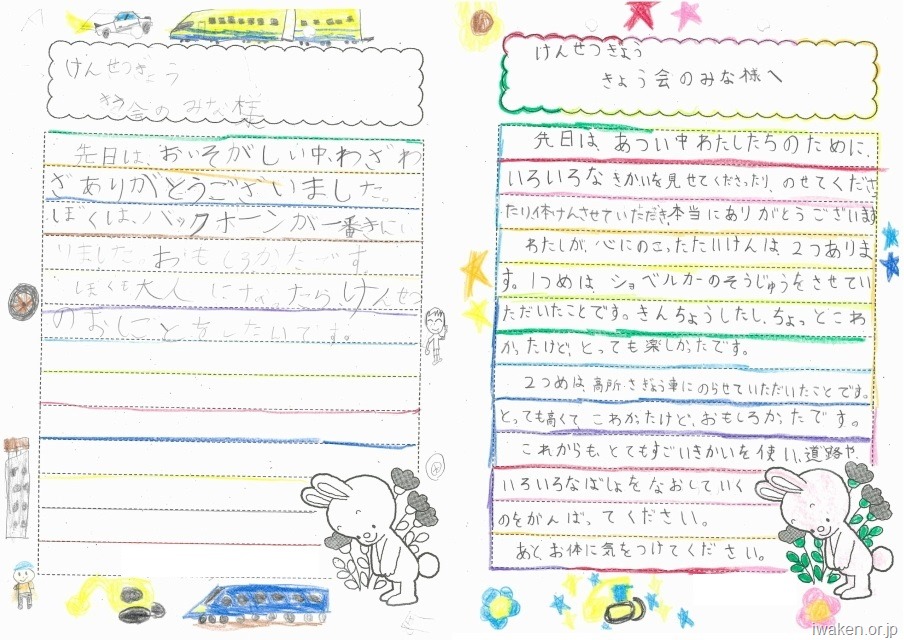 けんせつぎょう
きょう会のみな様
先日は、おいそがしい中、わざわ
ざありがとうございました。
ぼくは、バックホーンが一番きにい
りました。おもしろかたです。
ぼくも大人になったら、けんせつ
のおしごとをしたいです!
けんせつきょう
きょう会のみな様へ
先日は あつい中わたしたちのために、
いろいろな きかいを見せてくださったり、のせてくださ
たり体けんさせていただき、本当にありがとうございます
わたしが、心にのこったたいけんは、2つありま
す。1つめは、ショベルカーのそうじゅうをさせてい
ただいたことです。きんちょうしたし、ちょっとこわ
かったけど、とっても楽しかったです。
2つめは高所さぎょう車にのらせていただいたことです。
とっても高くて、こわかったけど、おもしろかったです。
これからも、とてもすごいきかいを使い、道路や、
いろいろなばしょをなおしていく
のをがんばってください。
あと、お体に気をつけてください。
iwaken.or.jp